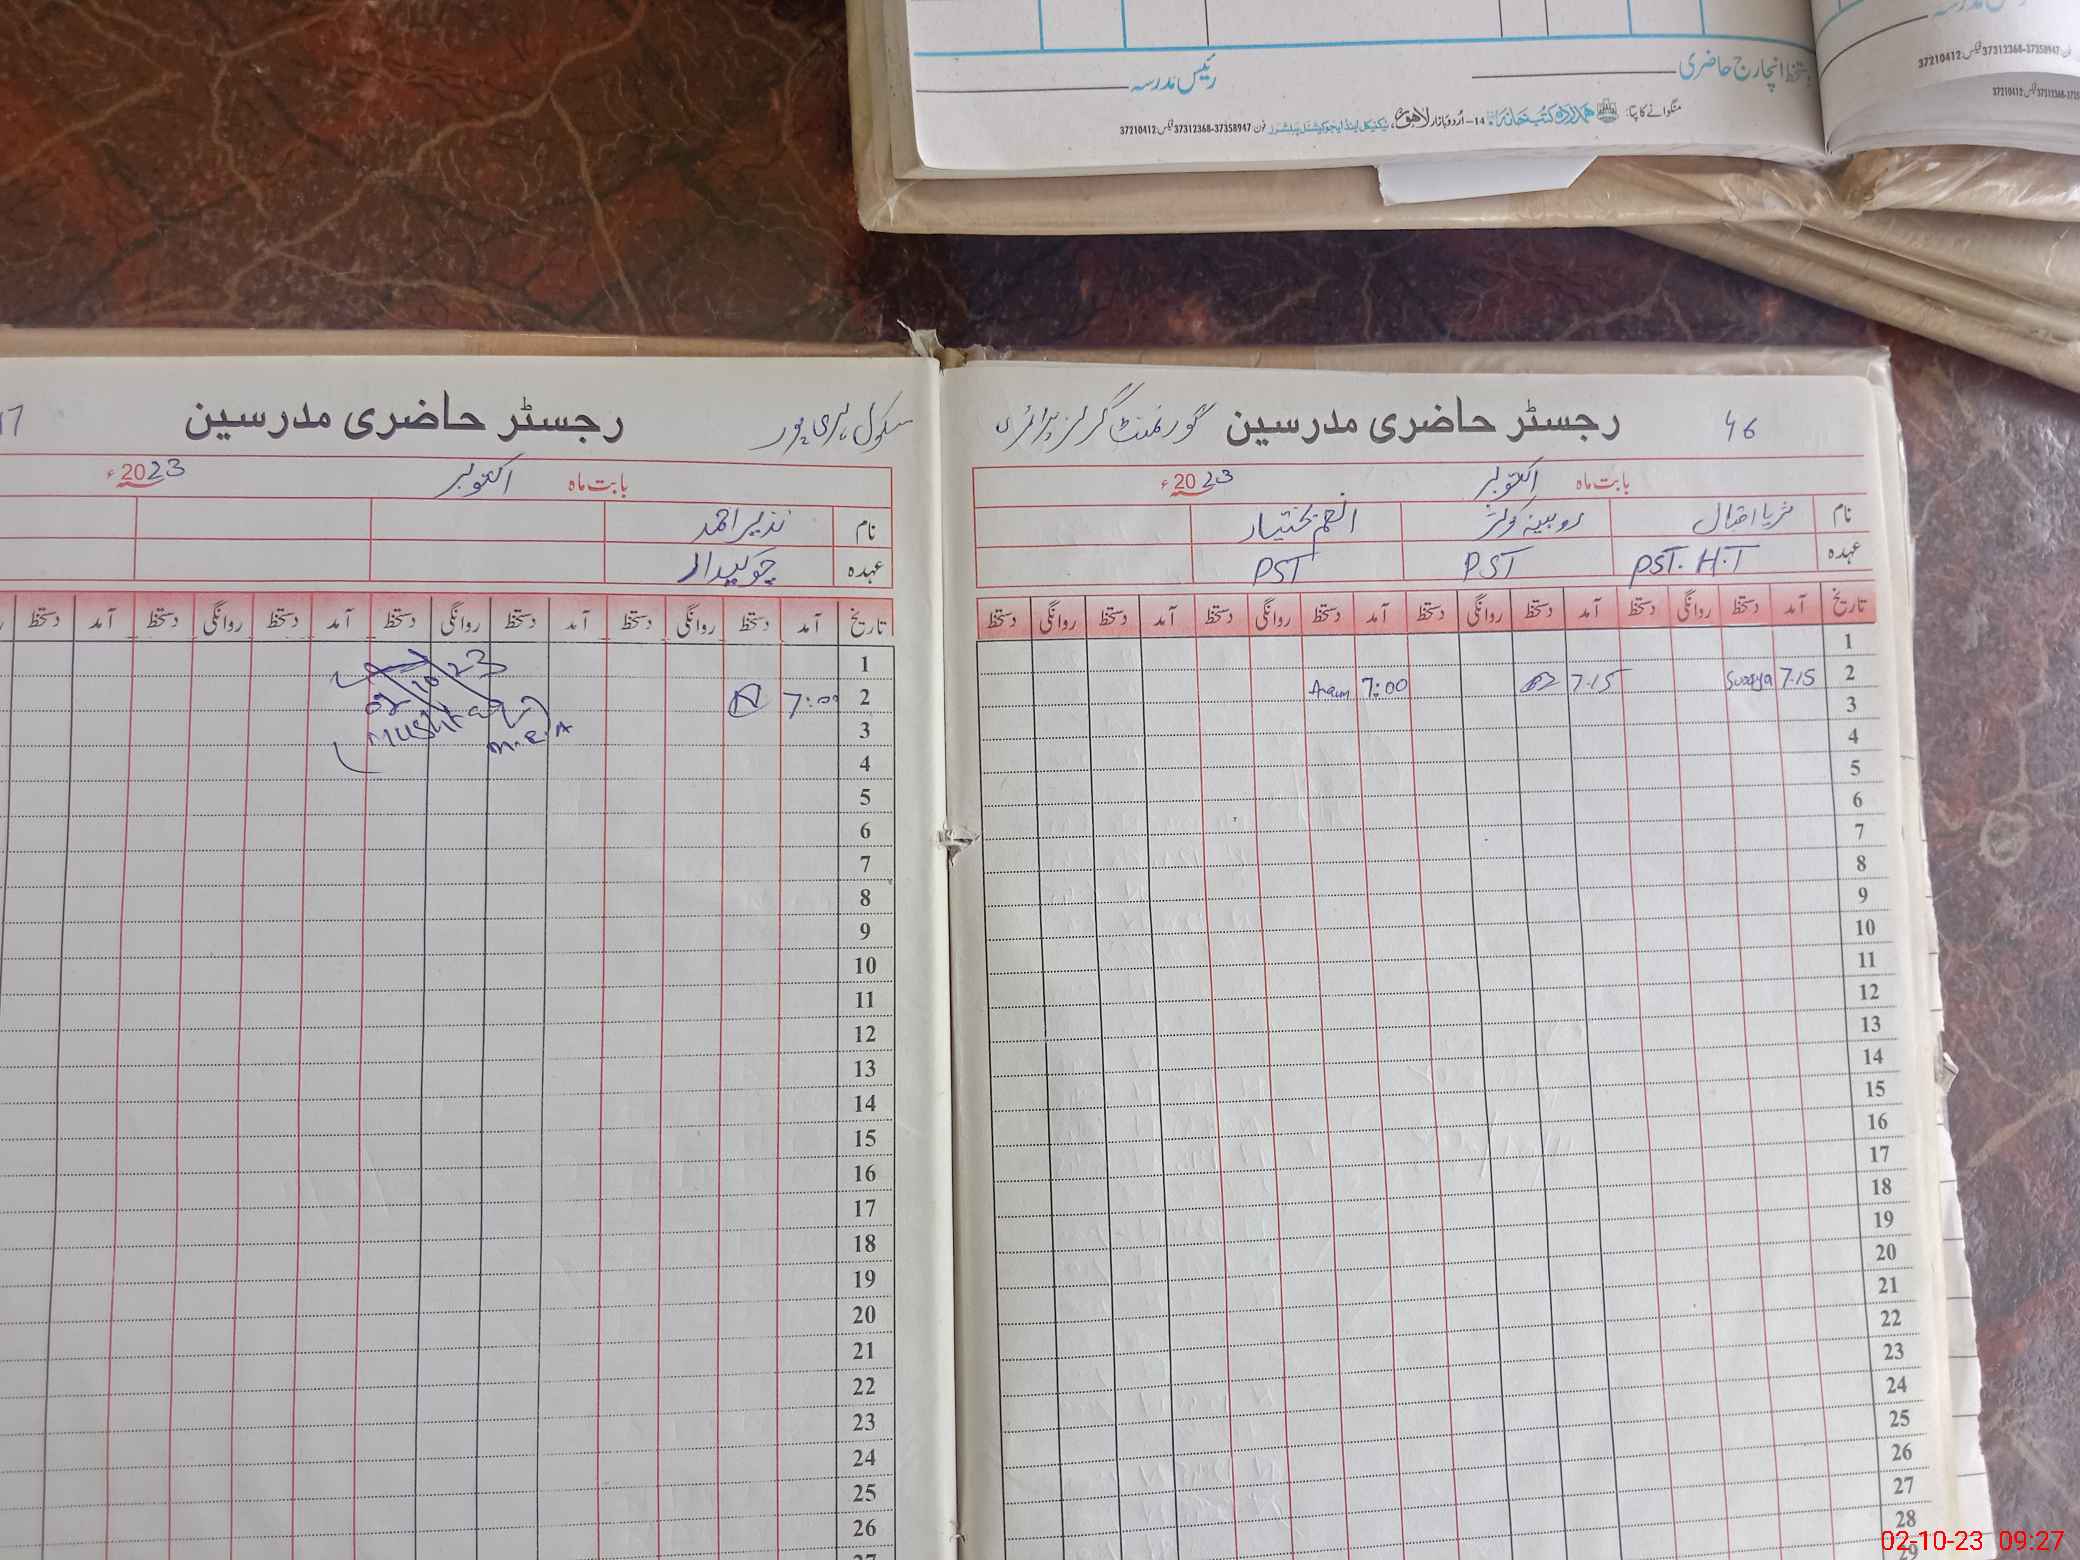 رئیس مدرسہ
دستخط انچارج حاضری
منگوانے کا پتا: ہمدرد کتب خانہ 14-اردو بازار لاہور، ٹیکنیکل اینڈ ایجوکیشنل پبلشرز فون 37358947-37312368 فیکس: 37210412
46 رجسٹر حاضری مدرسین گورنمنٹ گرلز پرائمری
بابت ماہ اکتوبر 2023ء
نام ثریا اقبال روبینہ کوثر انعم بختیار
عہدہ PST. H.T PST PST
تاریخ آمد دستخط روانگی دستخط آمد دستخط روانگی دستخط آمد دستخط روانگی دستخط آمد دستخط روانگی دستخط
1
2 7.15 Suraya 7.15 7:00
3
4
5
6
7
8
9
10
11
12
13
14
15
16
17
18
19
20
21
22
23
24
25
26
27
28
29
17 رجسٹر حاضری مدرسین سکول ہری پور
بابت ماہ اکتوبر 2023ء
نام نذیر احمد
عہدہ چوکیدار
تاریخ آمد دستخط روانگی دستخط آمد دستخط روانگی دستخط آمد دستخط روانگی دستخط آمد دستخط
1
2 7:00
02/10/23
Mushtaq
M.E.A
3
4
5
6
7
8
9
10
11
12
13
14
15
16
17
18
19
20
21
22
23
24
25
26
27
02-10-23 09:27